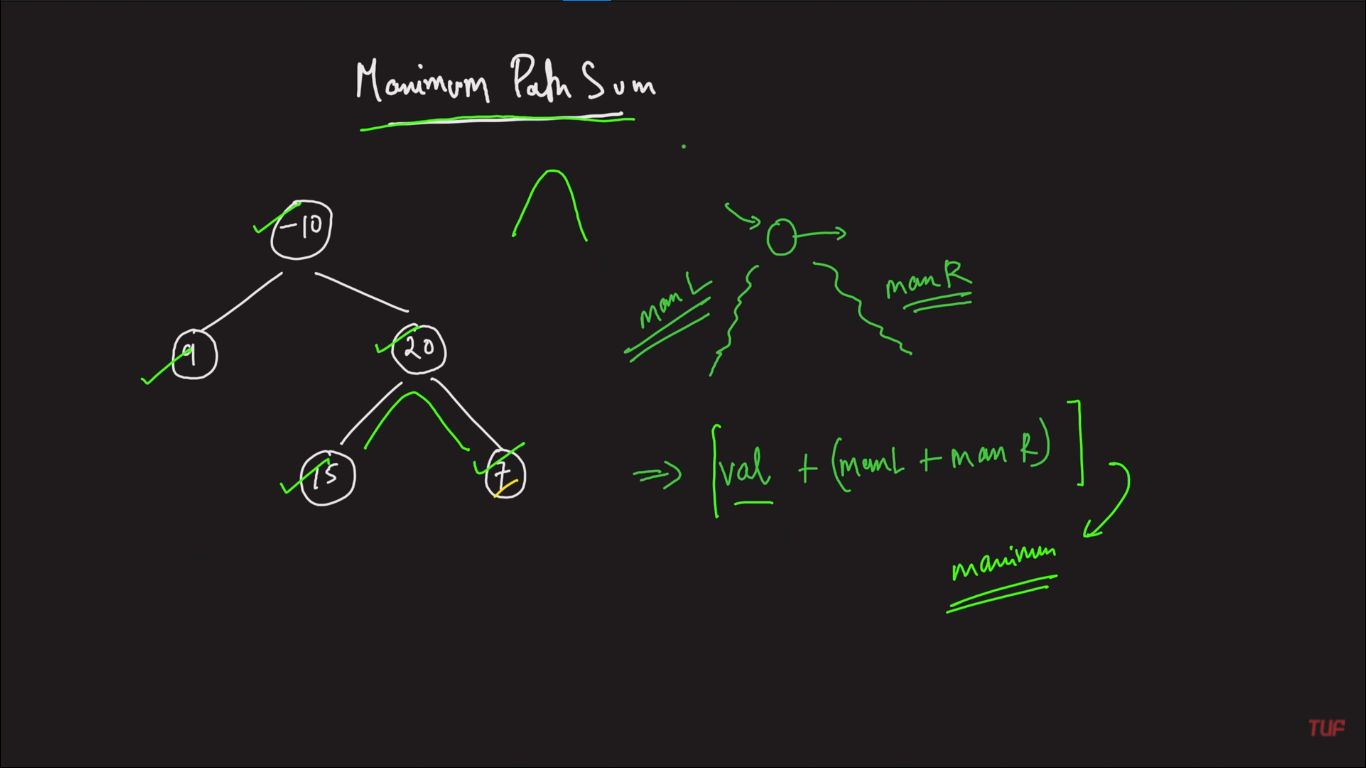 Maximum Path Sum
-10
9
20
15
7
maxL
maxR
⇒ [val + (maxL + maxR)]
maximum
TUF